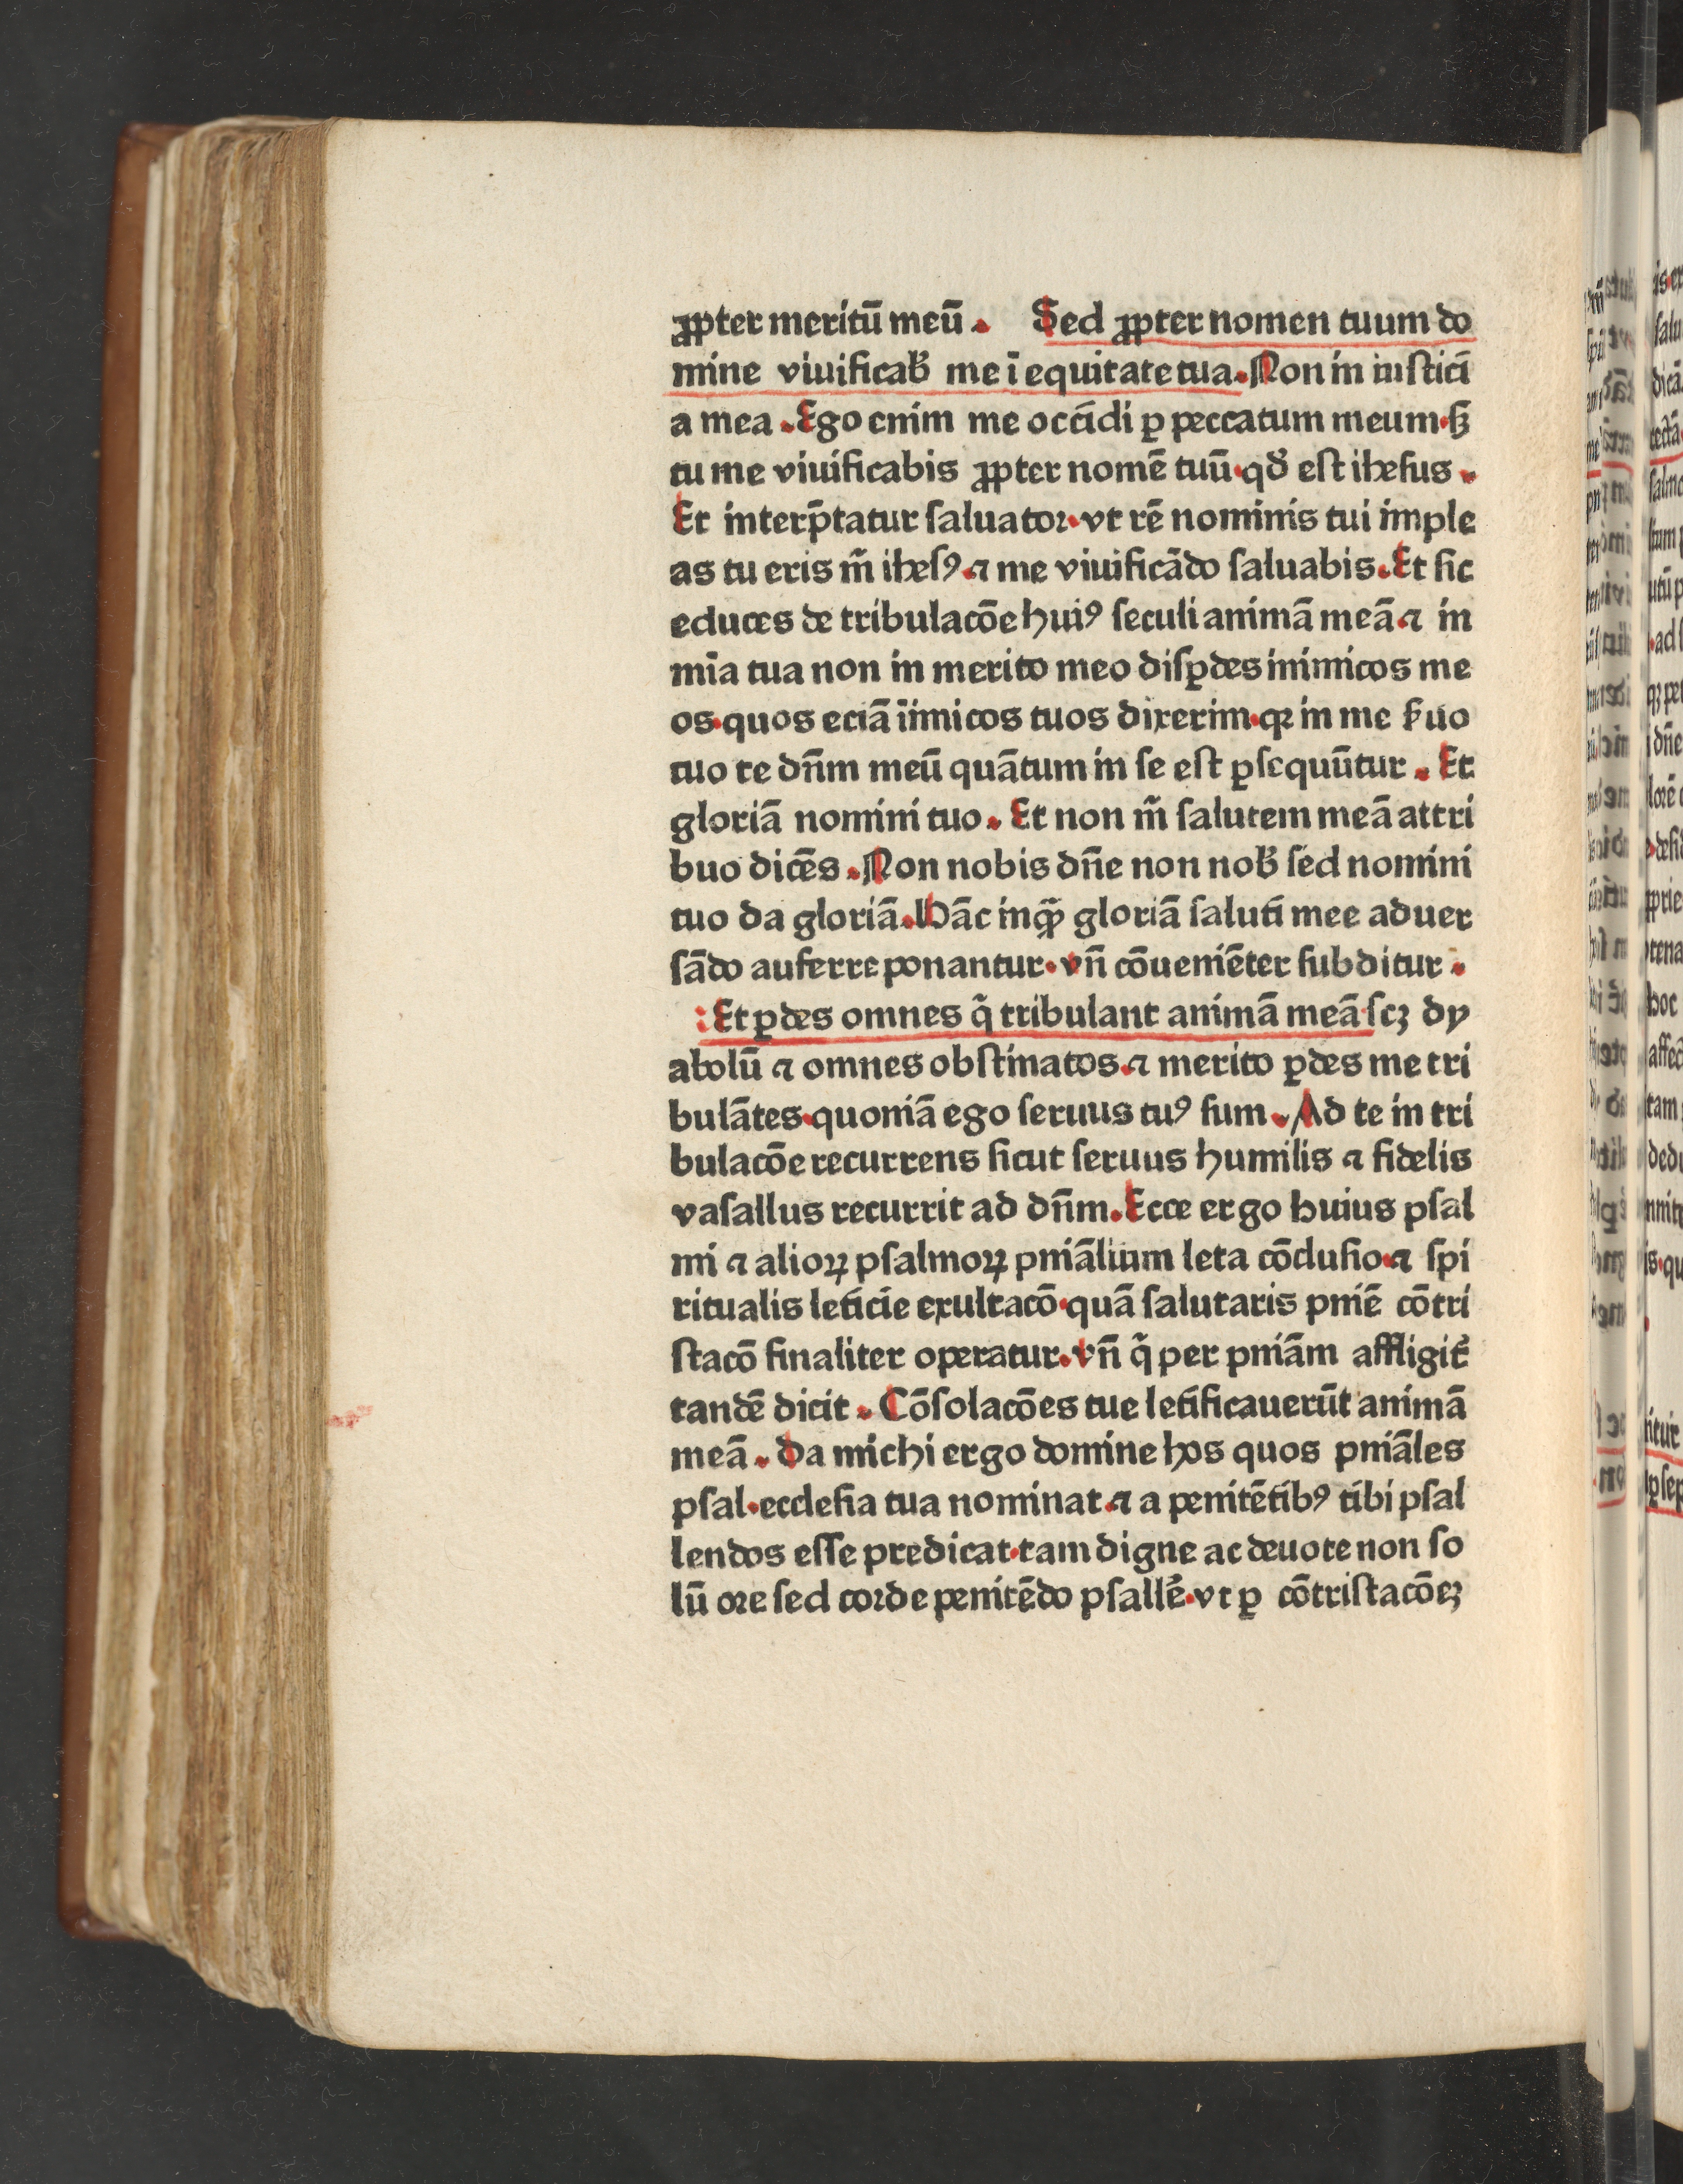 ꝓpter meritū meū. Sed ꝓpter nomen tuum do
mine viuificab̛ me ī equitate tua. Non in iusticí
a mea. Ego enim me occídi ꝑ peccatum meum. sꝫ
tu me viuificabis ꝓpter nomē tuū. qđ est ihesus.
Et interp̄tatur saluator. vt rē nominis tui imple
as tu eris m̄ ihesꝰ. ⁊ me viuificādo saluabis. Et sic
educes de tribulacōe huiꝰ seculi animā meā. ⁊ in
mīa tua non in merito meo disꝑdes inimicos me
os. quos eciā iīmicos tuos dixerim. qꝛ in me ẜuo
tuo te dn̄m meū quātum in se est ꝑsequūtur. Et
gloriā nomini tuo. Et non m̄ salutem meā attri
buo dicēs. Non nobis dn̄e non nob̛ sed nomini
tuo da gloriā. Hāc inqͣꝫ gloriā saluti mee aduer
sādo auferre ponantur. vn̄ cōueniēter subditur.
: Et ꝑdes omnes q̄ tribulant animā meā. scꝫ dy
abolū ⁊ omnes obstinatos. ⁊ merito ꝑdes me tri
bulātes. quoniā ego seruus tuꝰ sum. Ad te in tri
bulacōe recurrens sicut seruus humilis ⁊ fidelis
vasallus recurrit ad dn̄m. Ecce ergo huius psal
mi ⁊ alioꝝ psalmoꝝ pniāliūm leta cōclusio. ⁊ spi
ritualis leticie exultacō. quā salutaris pniē cōtri
stacō finaliter operatur. vn̄ q̄ per pniām affligit᷑
tandē dicit. Cōsolacōes tue letificauerūt animā
meā. Da michi ergo domine hos quos pniāles
psal. ecclesia tua nominat. ⁊ a penitētibꝰ tibi psal
lendos esse predicat. tam digne ac deuote non so
lū ore sed corde penitēdo psallē. vt ꝑ cōtristacōeꝫ